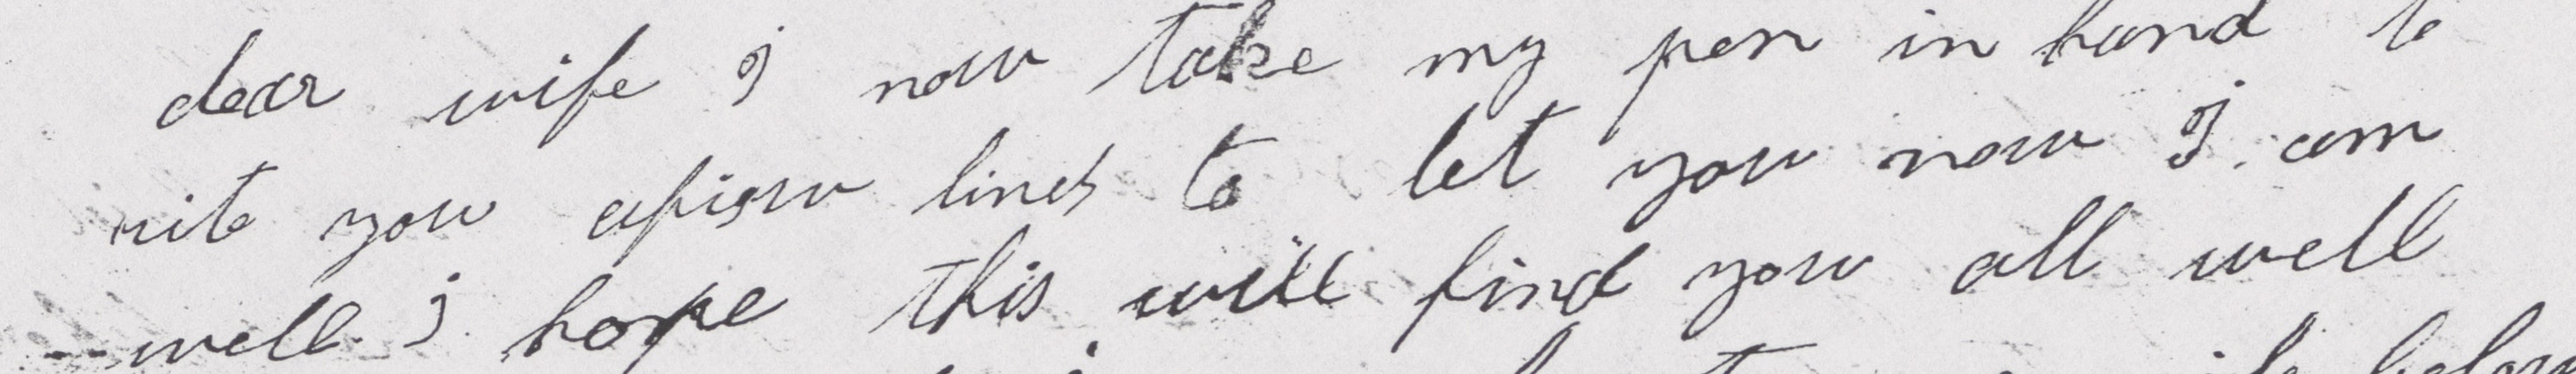 dear wife I now take my pen in hand to
rite you afiew lines to let you now I am
well I hope this will find you all well